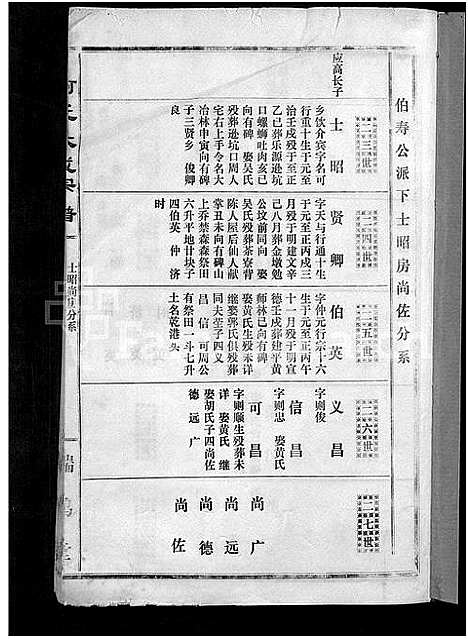 伯寿公派下士昭房尚佐分系
二三世
应高长子
士昭
乡饮介宾字名可
行重十生于元至
治壬戌殁于至正
乙已葬乐源逊坑
口螺蛳吐肉亥已
向有碑 娶吴氏
殁葬逊坑口周人
宅右上手令名大
冶林申寅向有碑
子三贤乡 俊卿
良
二四世
贤卿
字天与行通十生
于元至正丙戌三
月殁于明建文辛
己八月葬金墩勉
公坟前同向 娶
吴氏殁葬茶寮背
陈人屋后仙人献
掌丑未向有碑山
上乔禁森森祭田
六升平地廿块子
四伯英 仲 济
时
二五世
伯英
字仲元行宗十六
生于元至正丙午
十一月殁于明宣
德壬戌葬建平黄
师林已向有碑
娶黄氏生殁未详
继娶郭氏俱殁葬
同夫茔子四义
昌 信 可周公
有祭田一斗七升
土名乾港头
二六世
义昌
字则俊
信昌
字则忠 娶黄氏
可昌
字则顺生殁葬未
详 娶黄氏 继
娶胡氏子四尚佐
德 远 广
二七世
尚广
尚远
尚德
尚佐
士昭尚佐分系